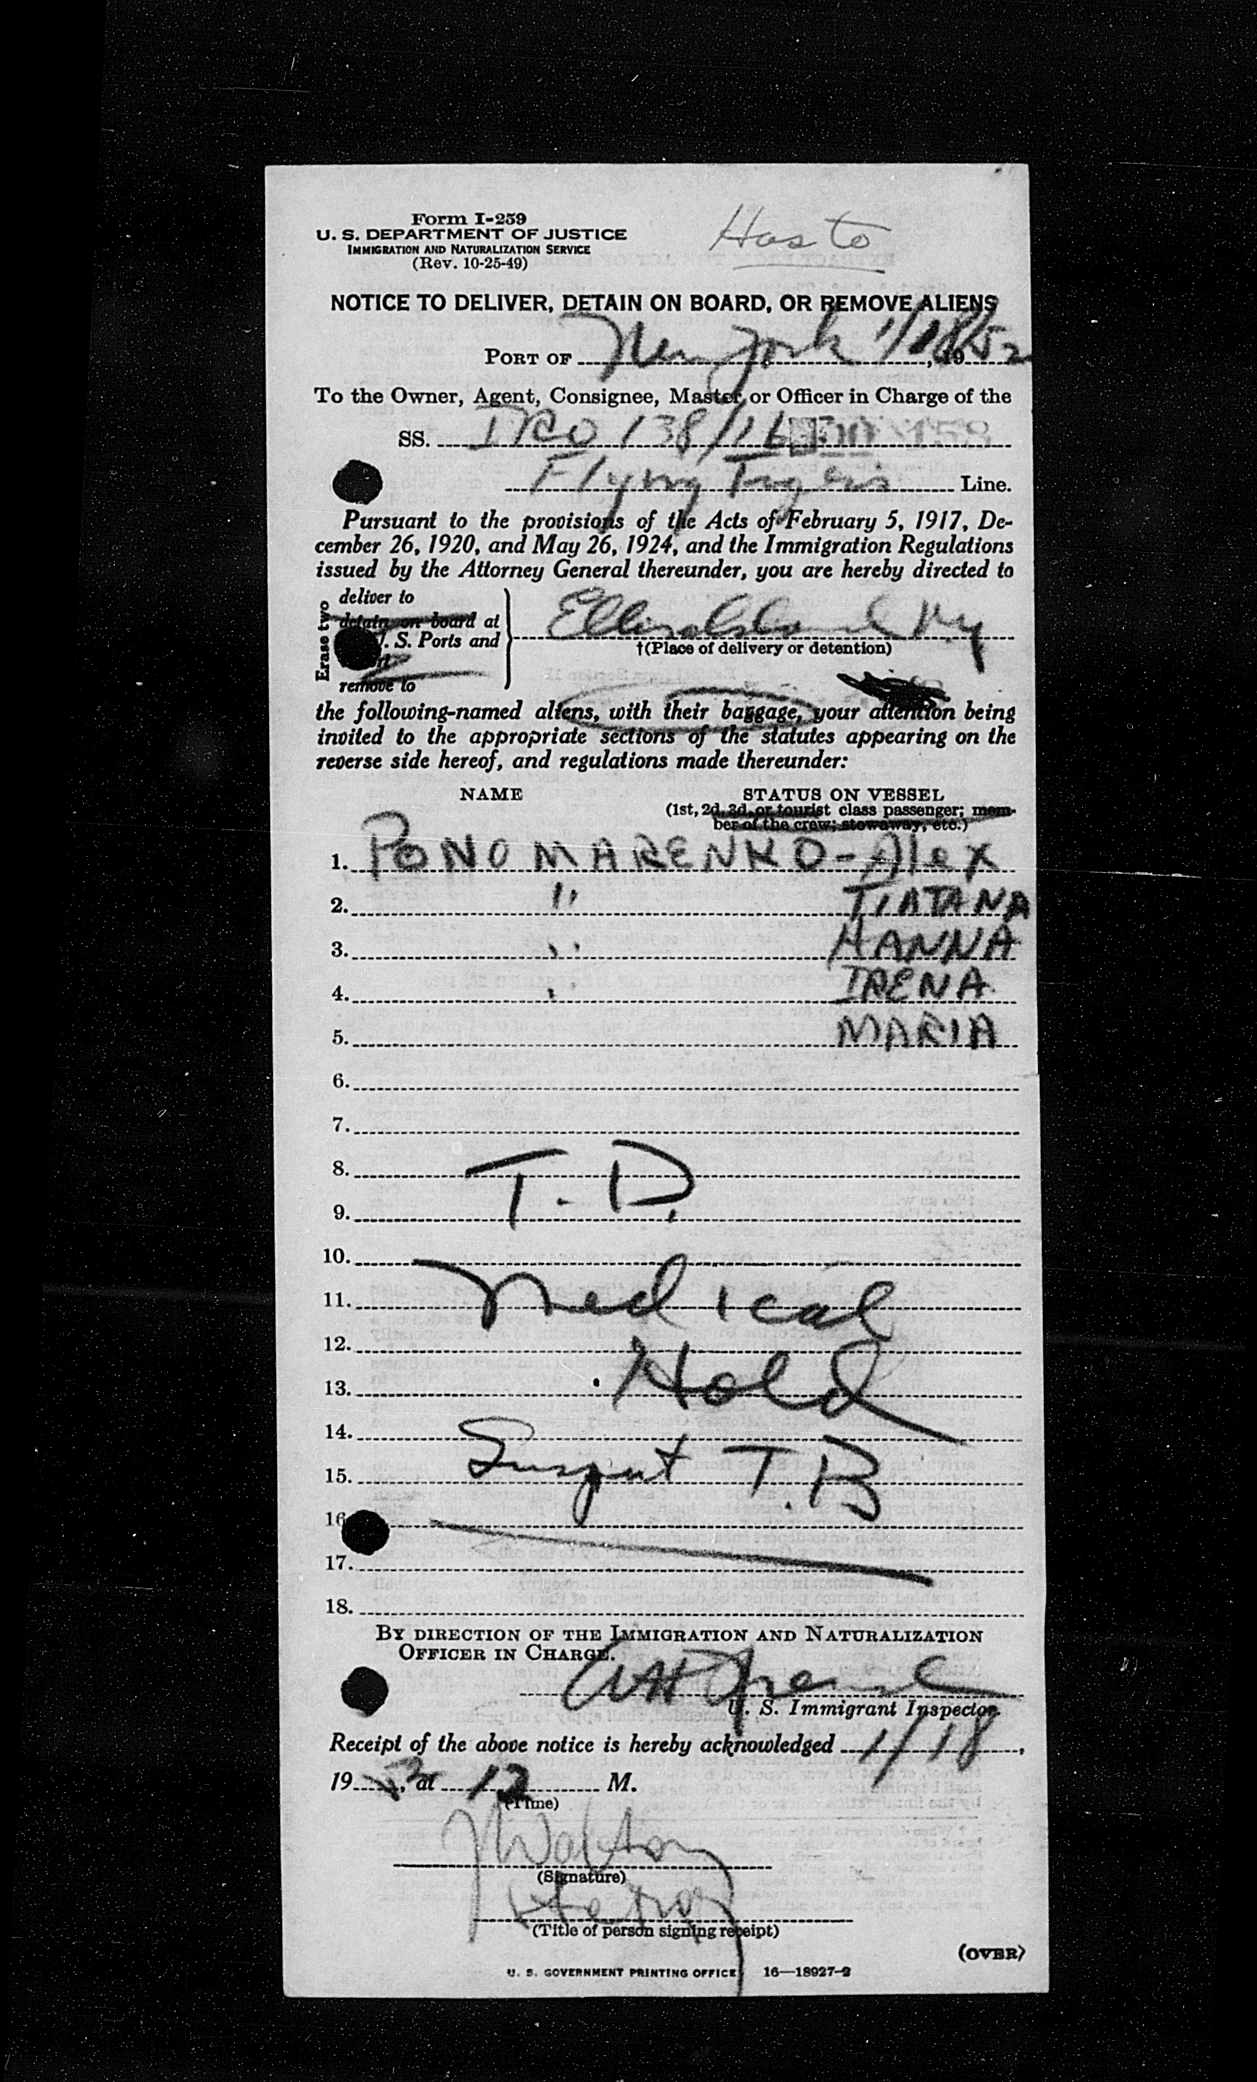 Form I-259
U. S. DEPARTMENT OF JUSTICE
IMMIGRATION AND NATURALIZATION SERVICE
(Rev. 10-25-49)
Has to
NOTICE TO DELIVER, DETAIN ON BOARD, OR REMOVE ALIENS
PORT OF New York 1/18, 1952
To the Owner, Agent, Consignee, Master, or Officer in Charge of the
SS. IRO 138/16
Flying Tigers Line.
Pursuant to the provisions of the Acts of February 5, 1917, De-
cember 26, 1920, and May 26, 1924, and the Immigration Regulations
issued by the Attorney General thereunder, you are hereby directed to
Erase two
deliver to
detain on board at
U. S. Ports and
remove to
Ellis Island NY
†(Place of delivery or detention)
the following-named aliens, with their baggage, your attention being
invited to the appropriate sections of the statutes appearing on the
reverse side hereof, and regulations made thereunder:
NAME STATUS ON VESSEL
(1st, 2d, 3d, or tourist class passenger; mem-
ber of the crew; stowaway, etc.)
1. PONOMARENKO - Alex
2. " TIATANA
3. " HANNA
4. " IRENA
5. MARIA
6.
7.
8. T.D.
9.
10.
11. Medical
12.
13. Hold
14.
15. Suspect T.B
16.
17.
18.
BY DIRECTION OF THE IMMIGRATION AND NATURALIZATION
OFFICER IN CHARGE.
U. S. Immigrant Inspector.
Receipt of the above notice is hereby acknowledged 1/18,
1952, at 12 M.
(Time)
(Signature)
(Title of person signing receipt)
(OVER)
U. S. GOVERNMENT PRINTING OFFICE 16—18927-2